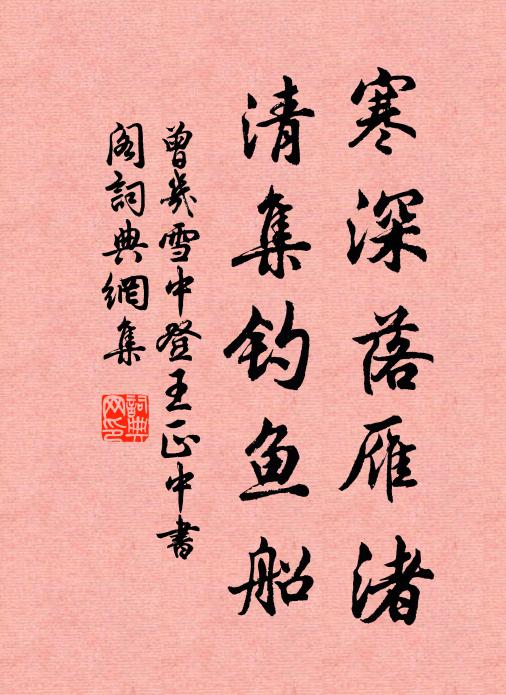 寒深落雁渚
清集钓鱼船
曾几雪中登王正中书
阁詞典網集
詞典
网印